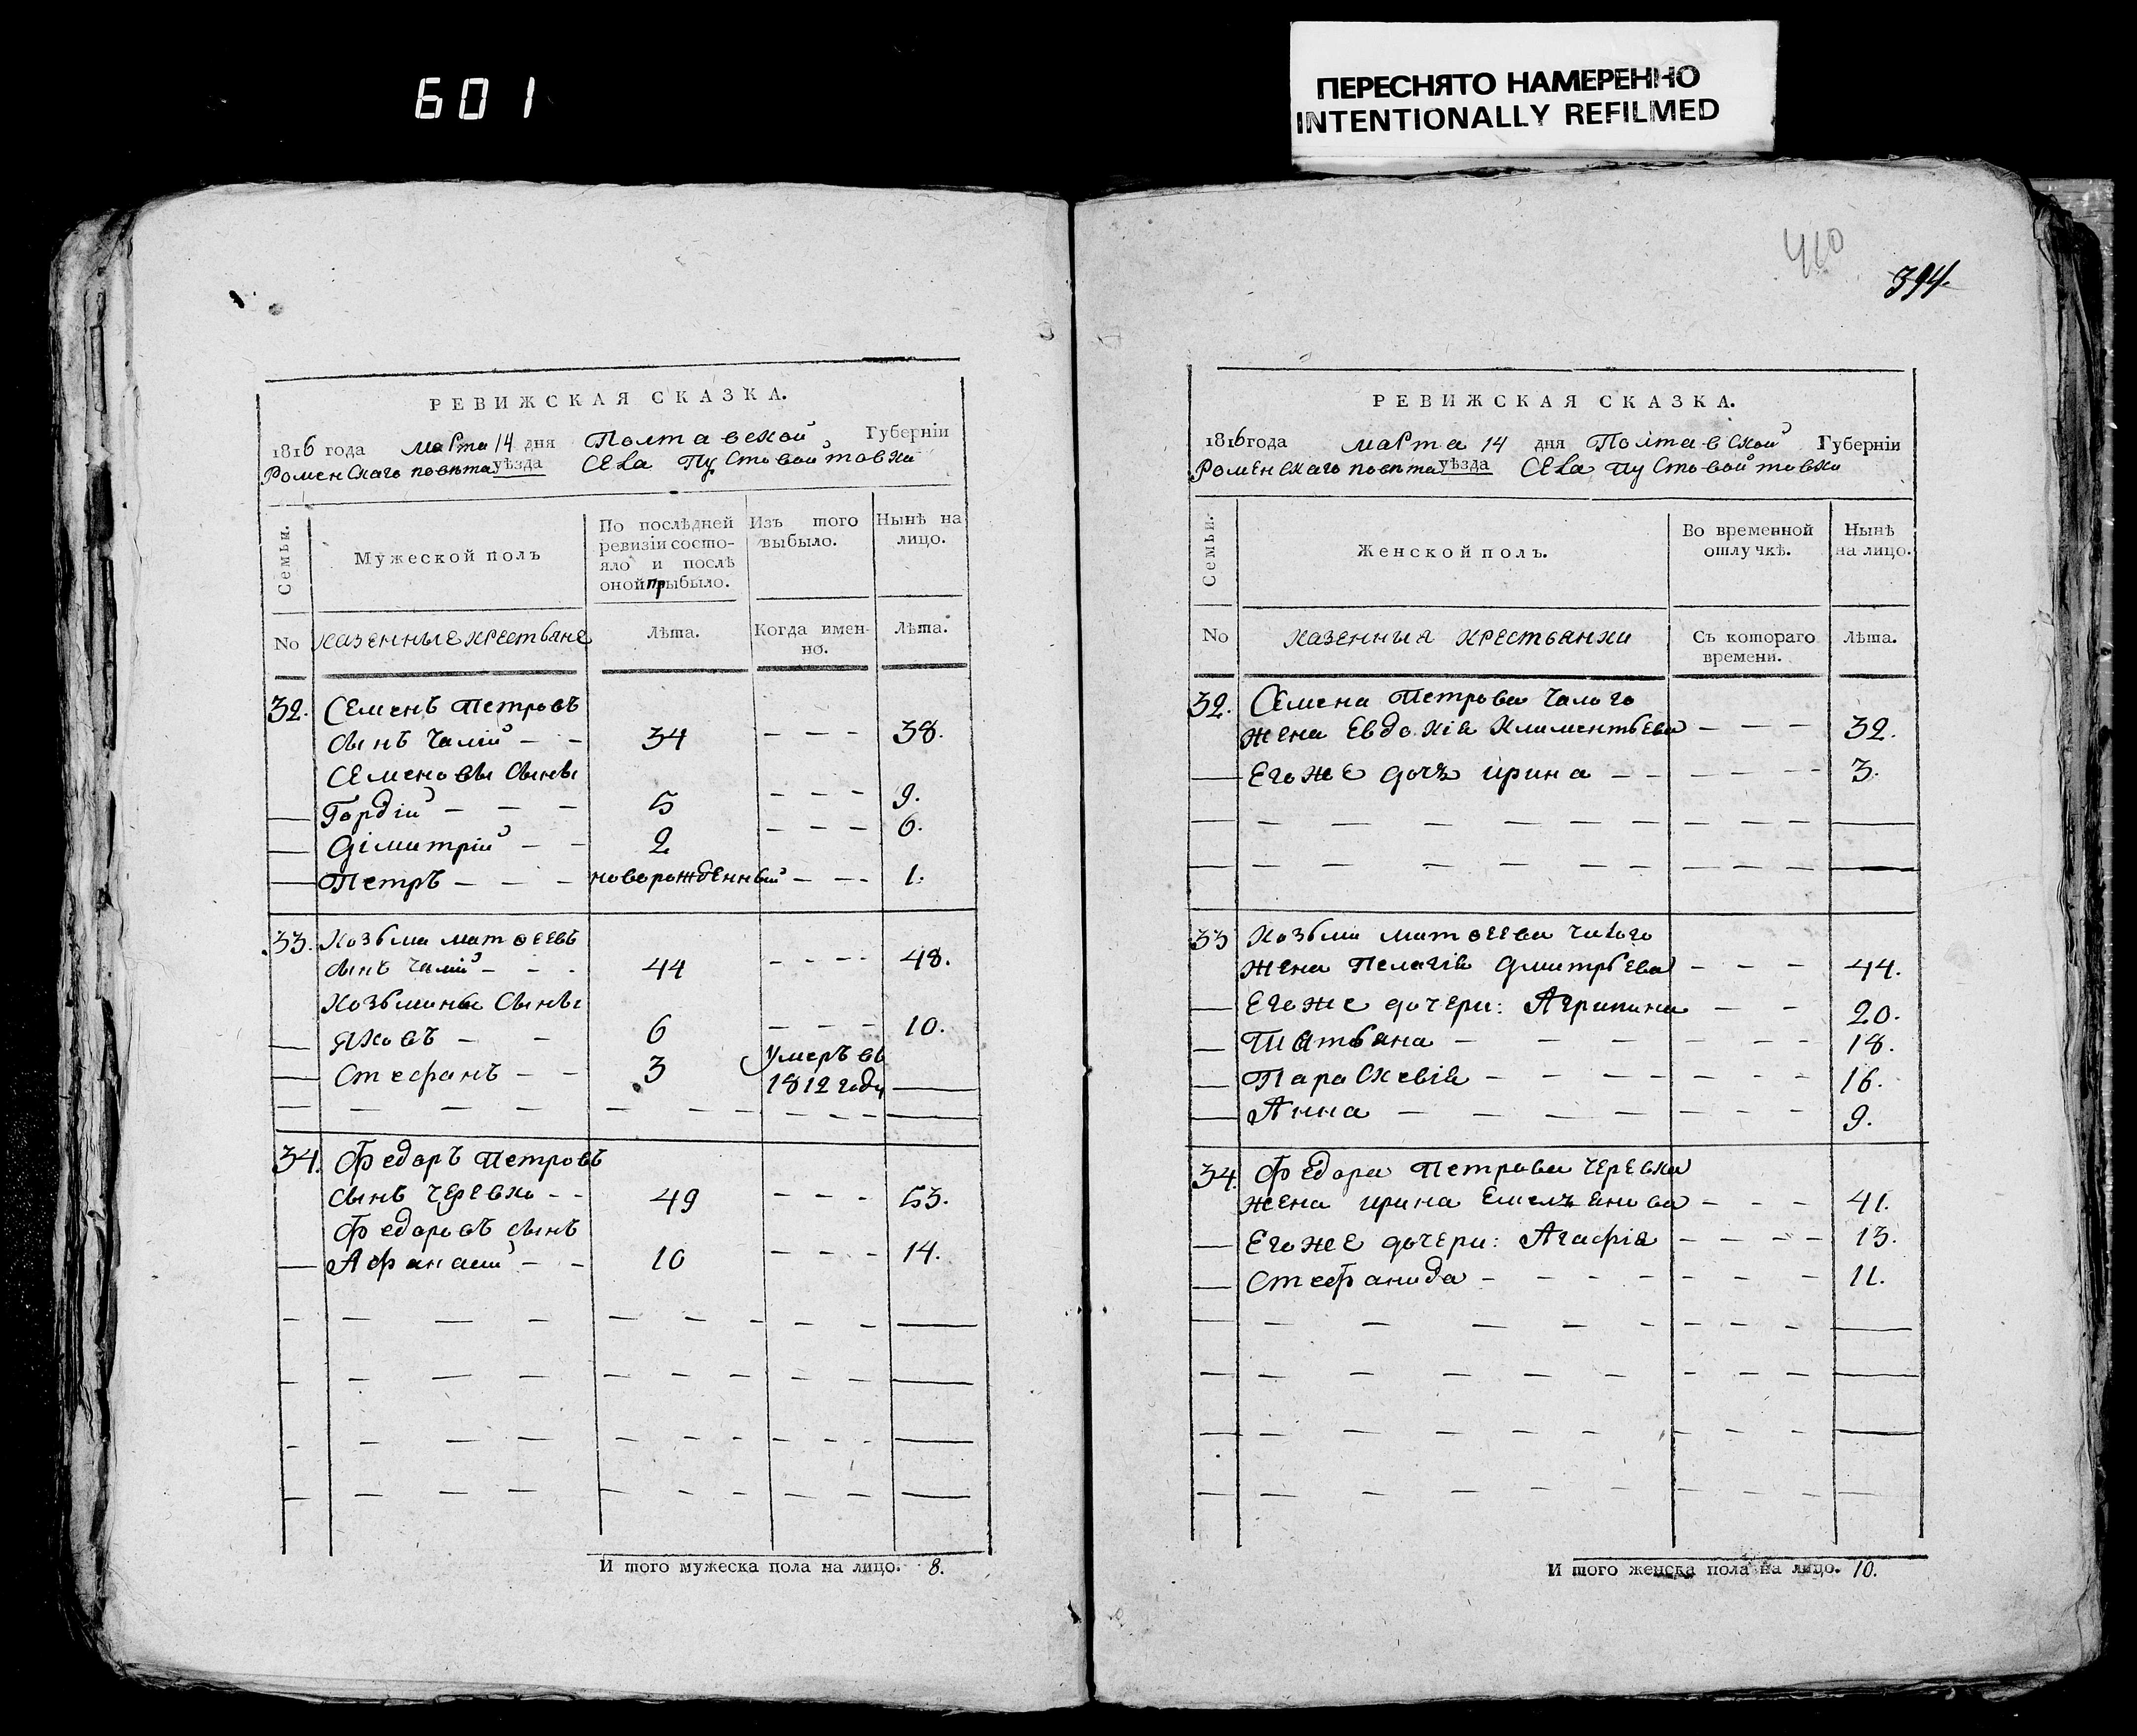 601
ПЕРЕСНЯТО НАМЕРЕННО
INTENTIONALLY REFILMED
410
394.
РЕВИЖСКАЯ СКАЗКА.
1816 года марта 14 дня Полтавской Губерніи
Роменскаго повѣта уѣзда села Пустовойтовки
Семьи.
Мужеской полъ
По послѣдней ревизіи состо-
яло и послѣ
оной прибыло.
Изъ того
выбыло.
Нынѣ на
лицо.
No
казенные крестьяне
Лѣта.
Когда имен-
но.
Лѣта.
32. Семенъ Петровъ
сынъ Чалій - - 34 - - - 38.
Семеновы сыны
Гордій - - - 5 - - - 9.
Димитрій - - 2 - - - 6.
Петръ - - - новорожденный - - - 1.
33. Козьма Матѳеевъ
сынъ Чалій - - - 44 - - - - 48.
Козьмины сыны
Яковъ - - 6 - - - 10.
Стефанъ - - 3 Умеръ въ
1812 году
34. Федоръ Петровъ
сынъ Черевко - - 49 - - - 53.
Федоровъ сынъ
Афанасій - - 10 - - - 14.
И того мужеска пола на лицо. 8.
РЕВИЖСКАЯ СКАЗКА.
1816 года марта 14 дня Полтавской Губерніи
Роменскаго повѣта уѣзда села Пустовойтовки
Семьи.
Женской полъ.
Во временной
отлучкѣ.
Нынѣ
на лицо.
No
казенныя крестьянки
Съ котораго
времени.
Лѣта.
32. Семена Петрова Чалого
жена Евдокія Климентьева - - - 32.
Его же дочь Ирина - - - - - - 3.
33 Козьми Матѳеева Чалого
жена Пелагія Дмитрьева - - - 44.
Его же дочери: Агрипина - - 20.
Татьяна - - - - - - 18.
Параскевія - - - - - - - 16.
Анна - - - - - - - 9.
34. Федора Петрова Черевка
жена Ирина Емельянова - - - 41.
Его же дочери: Агафія - - - - 13.
Стефанида - - - - - - - 11.
И того женска пола на лицо. 10.